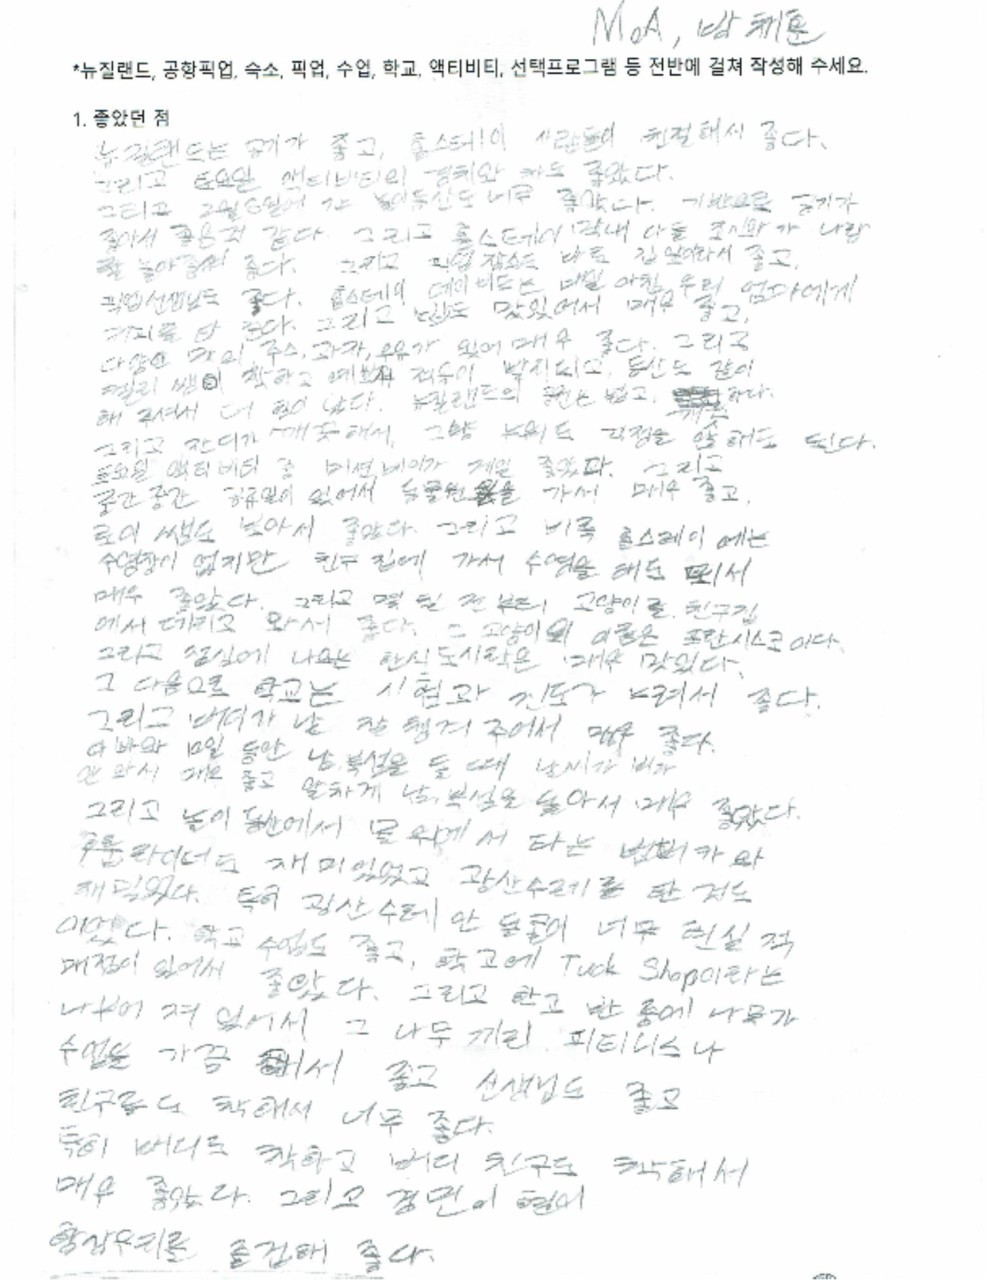 MOA, 박채훈
*뉴질랜드, 공항픽업, 숙소, 픽업, 수업, 학교, 액티비티, 선택프로그램 등 전반에 걸쳐 작성해 주세요.
1. 좋았던 점
뉴질랜드는 공기가 좋고, 홈스테이 사람들이 친절해서 좋다.
그리고 토요일 액티비티의 경치와 차도 좋았다.
그리고 2월 6일에 간 놀이동산도 너무 좋았다. 기본으로 공기가
좋아서 좋은 것 같다. 그리고 홈스테이 막내 아들 조시화가 나랑
잘 놀아줘서 좋다. 그리고 픽업 장소도 바로 집 앞이라서 좋고,
픽업선생님도 좋다. 홈스테이 데이비드는 매일 아침 우리 엄마에게
커피를 타 준다. 그리고 밥도 맛있어서 매우 좋고,
다양한 차와, 주스, 과자, 우유가 있어 매우 좋다. 그리고
켈리 쌤이 착하고 예뻐서 저두이 방지되고, 등산도 같이
해 주셔서 더 힘이 났다. 뉴질랜드의 공원은 넓고, 깨끗하다.
그리고 잔디가 깨끗해서, 그냥 누워도 걱정을 안 해도 된다.
토요일 액티비티 중 미션베이가 제일 좋았다. 그리고
중간중간 휴일이 있어서 동물원을 가서 매우 좋고,
로이 쌤도 보아서 좋았다. 그리고 비록 홈스테이에는
수영장이 없지만 친구 집에 가서 수영을 해도 돼서
매우 좋았다. 그리고 몇 일 전부터 고양이를 친구집
에서 데리고 와서 좋다. 그 고양이의 이름은 프란시스코이다.
그리고 점심에 나오는 한식도시락은 매우 맛있다.
그 다음으로 학교는 시험과 진도가 느려서 좋다.
그리고 버디가 날 잘 챙겨 주어서 매우 좋다.
아빠와 10일 동안 남,북섬을 돌 때 날씨가 비가
안 와서 매우 좋고 알차게 남,북섬을 돌아서 매우 좋았다.
그리고 놀이동산에서 물 위에서 타는 범퍼카와
후룸라이더도 재미있었고 광산수레를 탄 것도
재밌었다. 특히 광산수레 안 동굴이 너무 현실적
이었다. 학교 수업도 좋고, 학교에 Tuck Shop이라는
매점이 있어서 좋았다. 그리고 학교 반 중에 나무가
나뉘어 져 있어서 그 나무 끼리 피티니스나
수업을 가끔 해서 좋고 선생님도 좋고
친구들도 착해서 너무 좋다.
특히 버디도 착하고 버디 친구도 착해서
매우 좋았다. 그리고 경민이 형이
항상우리를 즐겁해 좋다.